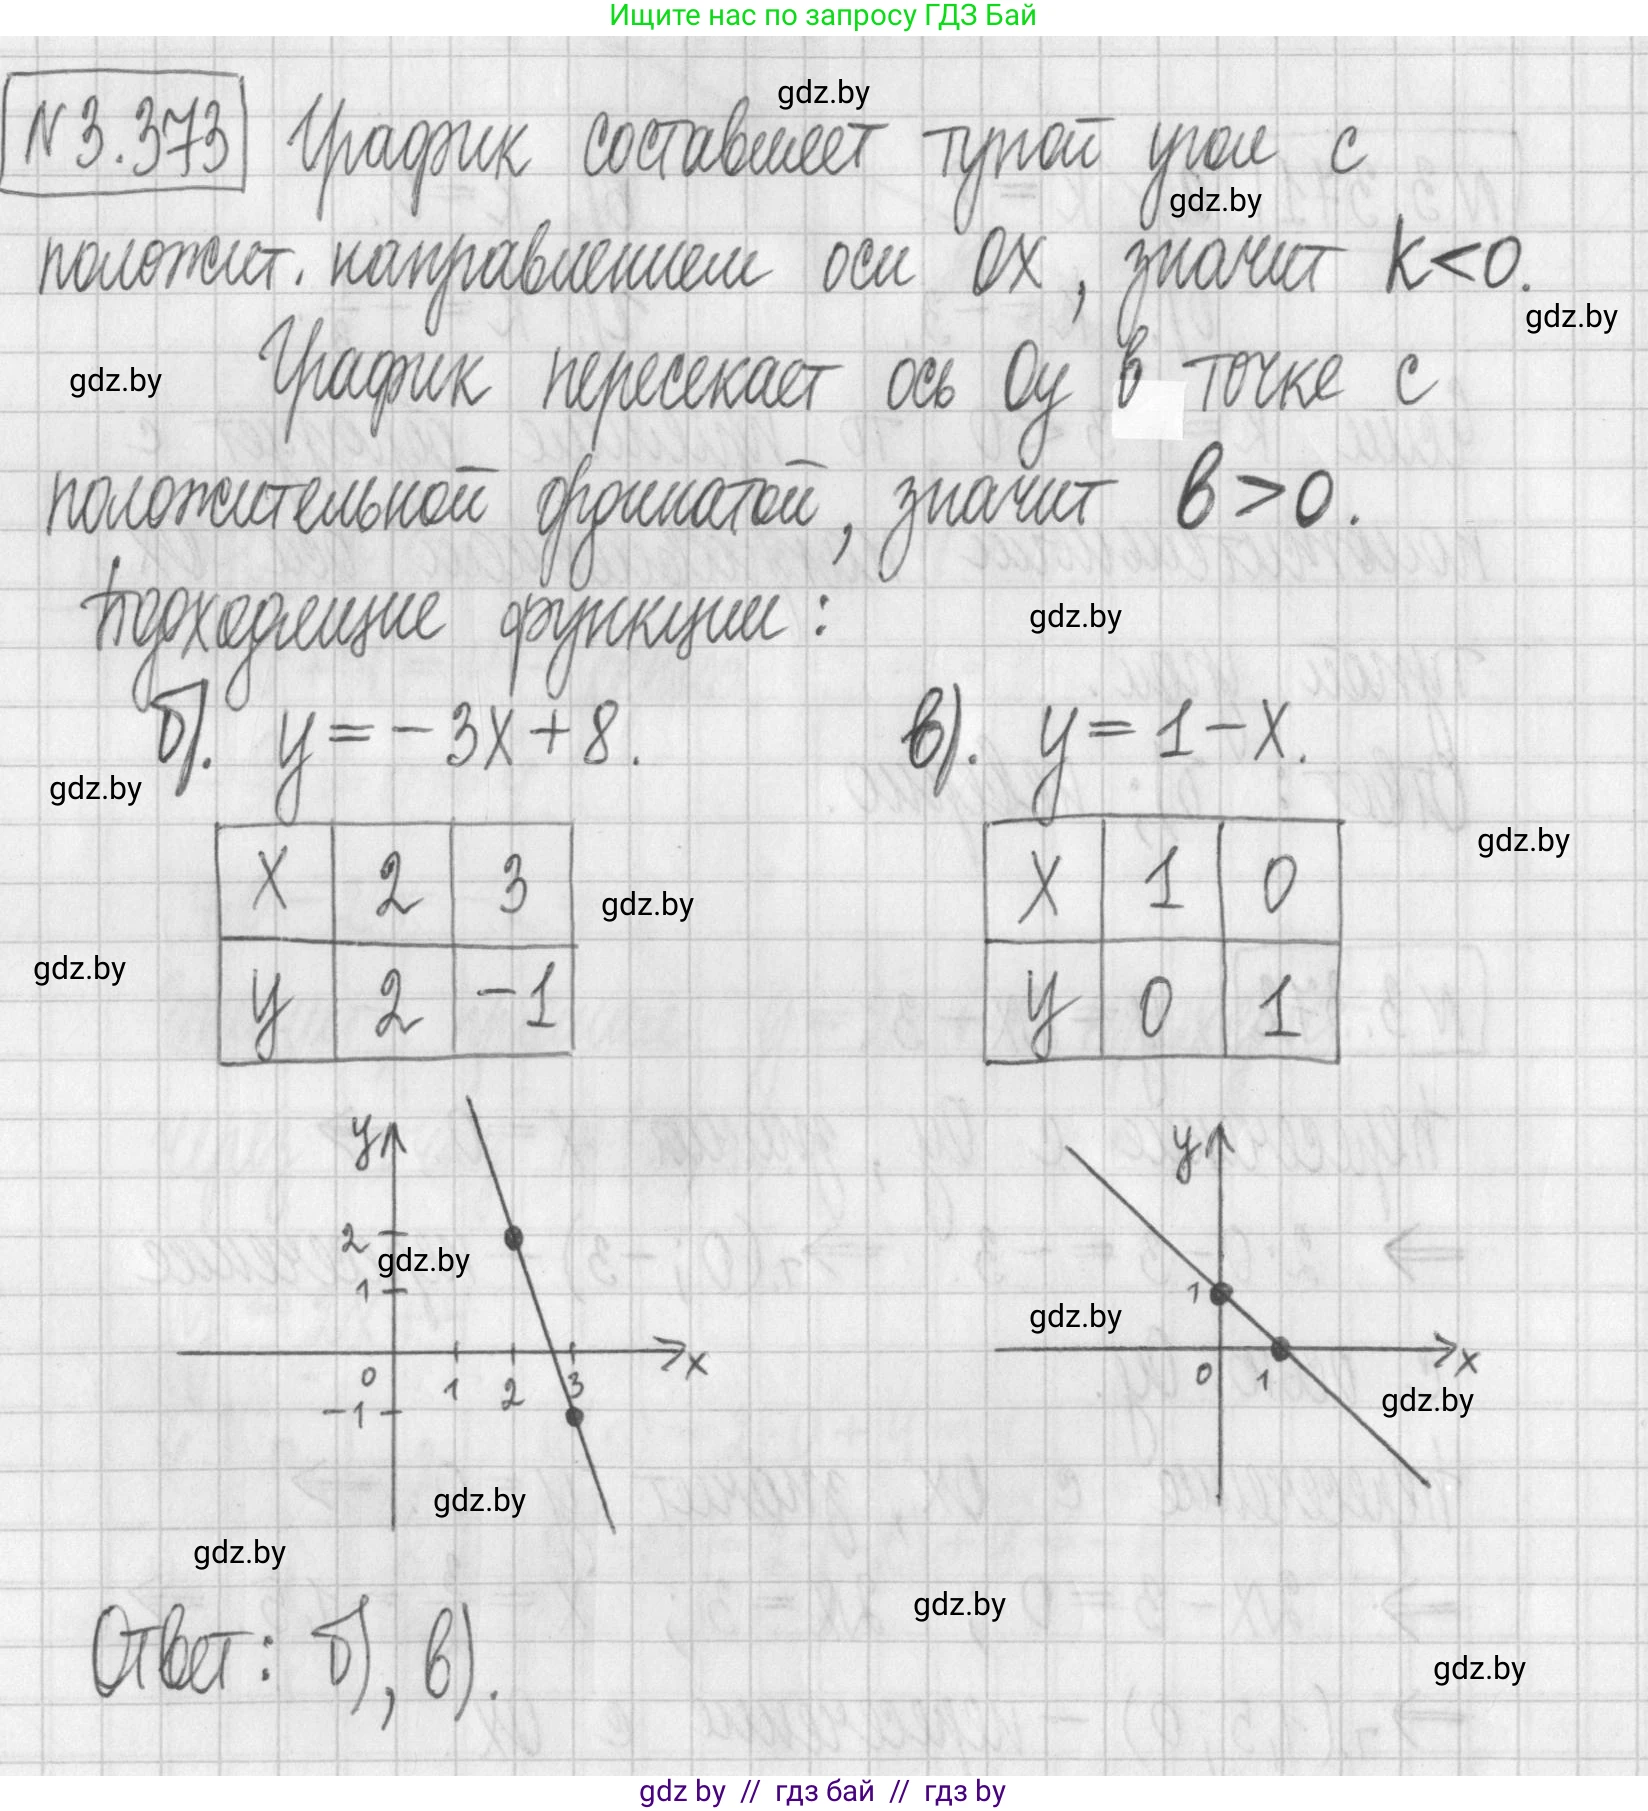 Ищите нас по запросу ГДЗ Бай
gdz.by
N 3.373 График составляет тупой угол с
gdz.by
положит. направлением оси Ox, значит k<0.
gdz.by
График пересекает ось Oy в точке с
gdz.by
положительной ординатой, значит b>0.
Подходящие функции:
gdz.by
б). y = -3x+8.
в). y = 1-x.
gdz.by
gdz.by
x 2 3
x 1 0
gdz.by
gdz.by
y 2 -1
y 0 1
y
y
2
gdz.by
1
1
gdz.by
x
x
0 1 2 3
0 1
-1
gdz.by
gdz.by
gdz.by
gdz.by
Ответ: б), в).
gdz.by
gdz by // гдз бай // гдз by